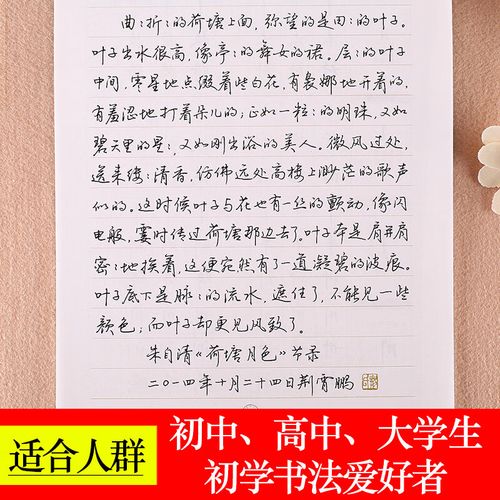 曲:折:的荷塘上面,弥望的是田:的叶子。
叶子出水很高,像亭:的舞女的裙。层:的叶子
中间,零星地点缀着些白花,有袅娜地开着的,
有羞涩地打着朵儿的;正如一粒:的明珠,又如
碧天里的星:,又如刚出浴的美人。微风过处,
送来缕:清香,仿佛远处高楼上渺茫的歌声
似的。这时候叶子与花也有一丝的颤动,像闪
电般,霎时传过荷塘那边去了。叶子本是肩并肩
密:地挨着,这便宛然有了一道凝碧的波痕。
叶子底下是脉:的流水,遮住了,不能见一些
颜色;而叶子却更见风致了。
朱自清《荷塘月色》节录
二〇一四年十月二十四日荆霄鹏
适合人群
初中、高中、大学生
初学书法爱好者